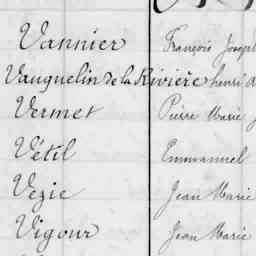 Vannier François Joseph
Vauquelin de la Rivière henri
Vermet Pierre Marie
Vétil Emmanuel
Vezie Jean Marie
Vigour Jean Marie